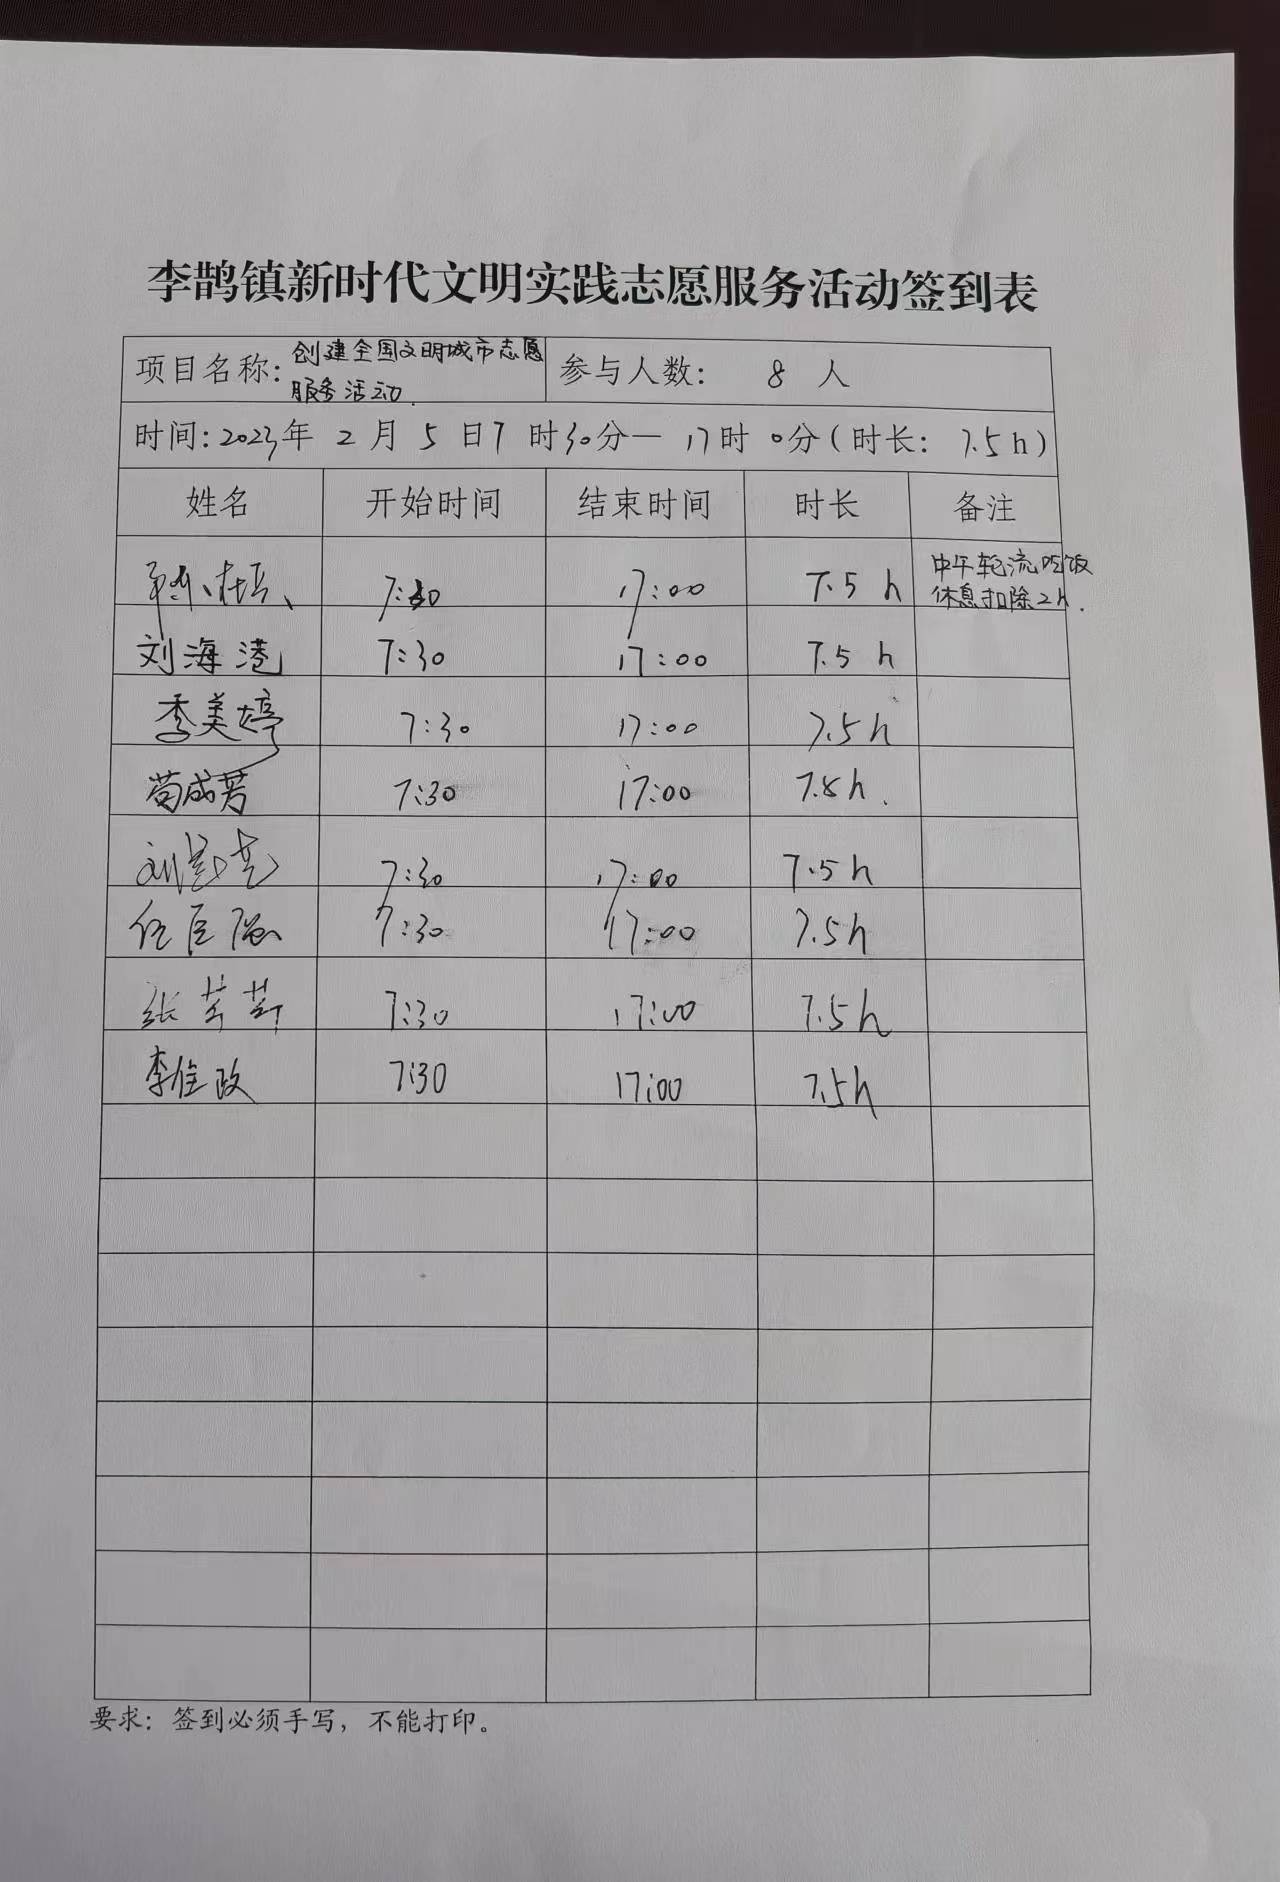 李鹊镇新时代文明实践志愿服务活动签到表
项目名称: 创建全国文明城市志愿服务活动. 参与人数: 8 人
时间: 2023年 2 月 5 日 7 时30分— 17时 0分(时长: 7.5 h)
姓名 开始时间 结束时间 时长 备注
7:30 17:00 7.5 h 中午轮流吃饭休息扣除2h.
刘海港 7:30 17:00 7.5 h
李美婷 7:30 17:00 7.5h
苟成芳 7:30 17:00 7.5h.
刘 7:30 17:00 7.5h
任 7:30 17:00 7.5h
张苹苹 7:30 17:00 7.5h
李佳政 7:30 17:00 7.5h
要求: 签到必须手写, 不能打印。